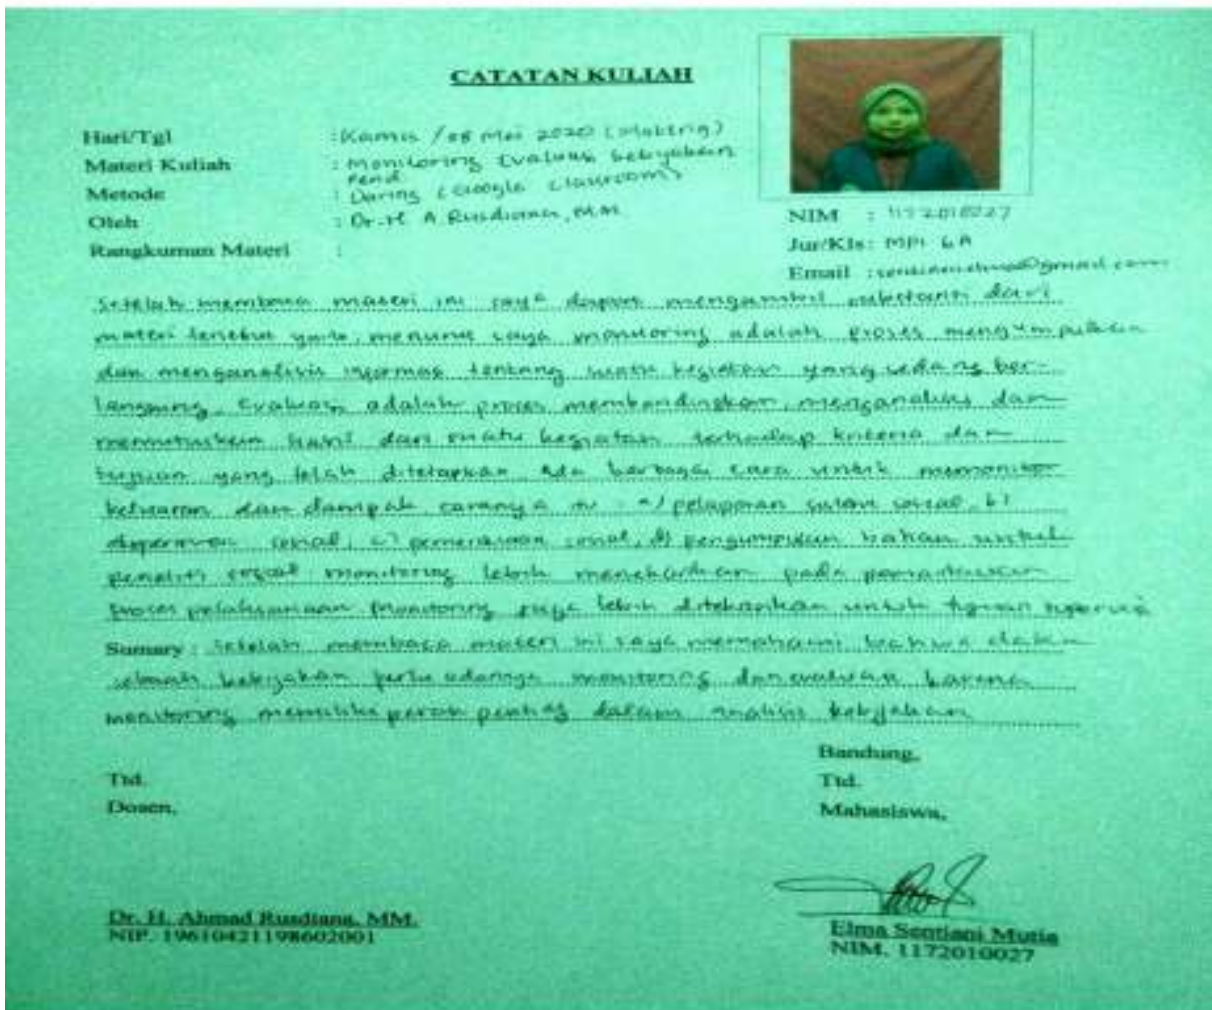 CATATAN KULIAH
Hari/Tgl : Kamis / 08 Mei 2020
Materi Kuliah : Monitoring Evaluasi kebijakan
Pend
Metode : Daring (Google Classroom)
Oleh : Dr. H. A. Rusdiana, MM
Rangkuman Materi :
NIM : 1172010027
Jur/Kls : MPI 6A
Email : @gmail.com
Setelah membaca materi ini saya dapat mengambil substansi dari
materi tersebut yaitu, menurut saya monitoring adalah proses mengumpulkan
dan menganalisis informasi tentang suatu kegiatan yang sedang ber-
langsung. Evaluasi adalah proses membandingkan, menganalisis dan
memutuskan hasil dari suatu kegiatan terhadap kriteria dan
tujuan yang telah ditetapkan. Ada berbagai cara untuk memonitor
keluaran dan dampak caranya a) pelaporan sistem sosial, b)
sosial, c) pemeriksaan sosial, d) pengumpulan bahan untuk
peneliti sosial monitoring lebih menekankan pada pemantauan
proses pelaksanaan monitoring juga lebih ditekankan untuk tujuan supervisi
Sumary : Setelah membaca materi ini saya memahami bahwa dalam
sebuah kebijakan perlu adanya monitoring dan evaluasi karena
monitoring memiliki peran penting dalam analisis kebijakan
Bandung,
Ttd.
Dosen,
Ttd.
Mahasiswa,
Dr. H. Ahmad Rusdiana, MM.
NIP. 196104211198602001
Elma Sentiani Mutia
NIM. 1172010027